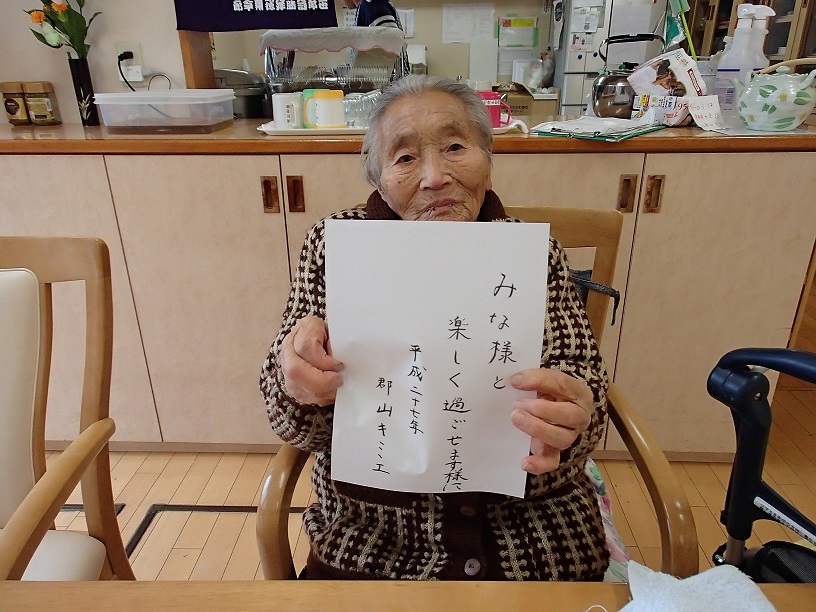 みな様と
楽しく過ごせます様に
平成二十七年
郡山キミエ